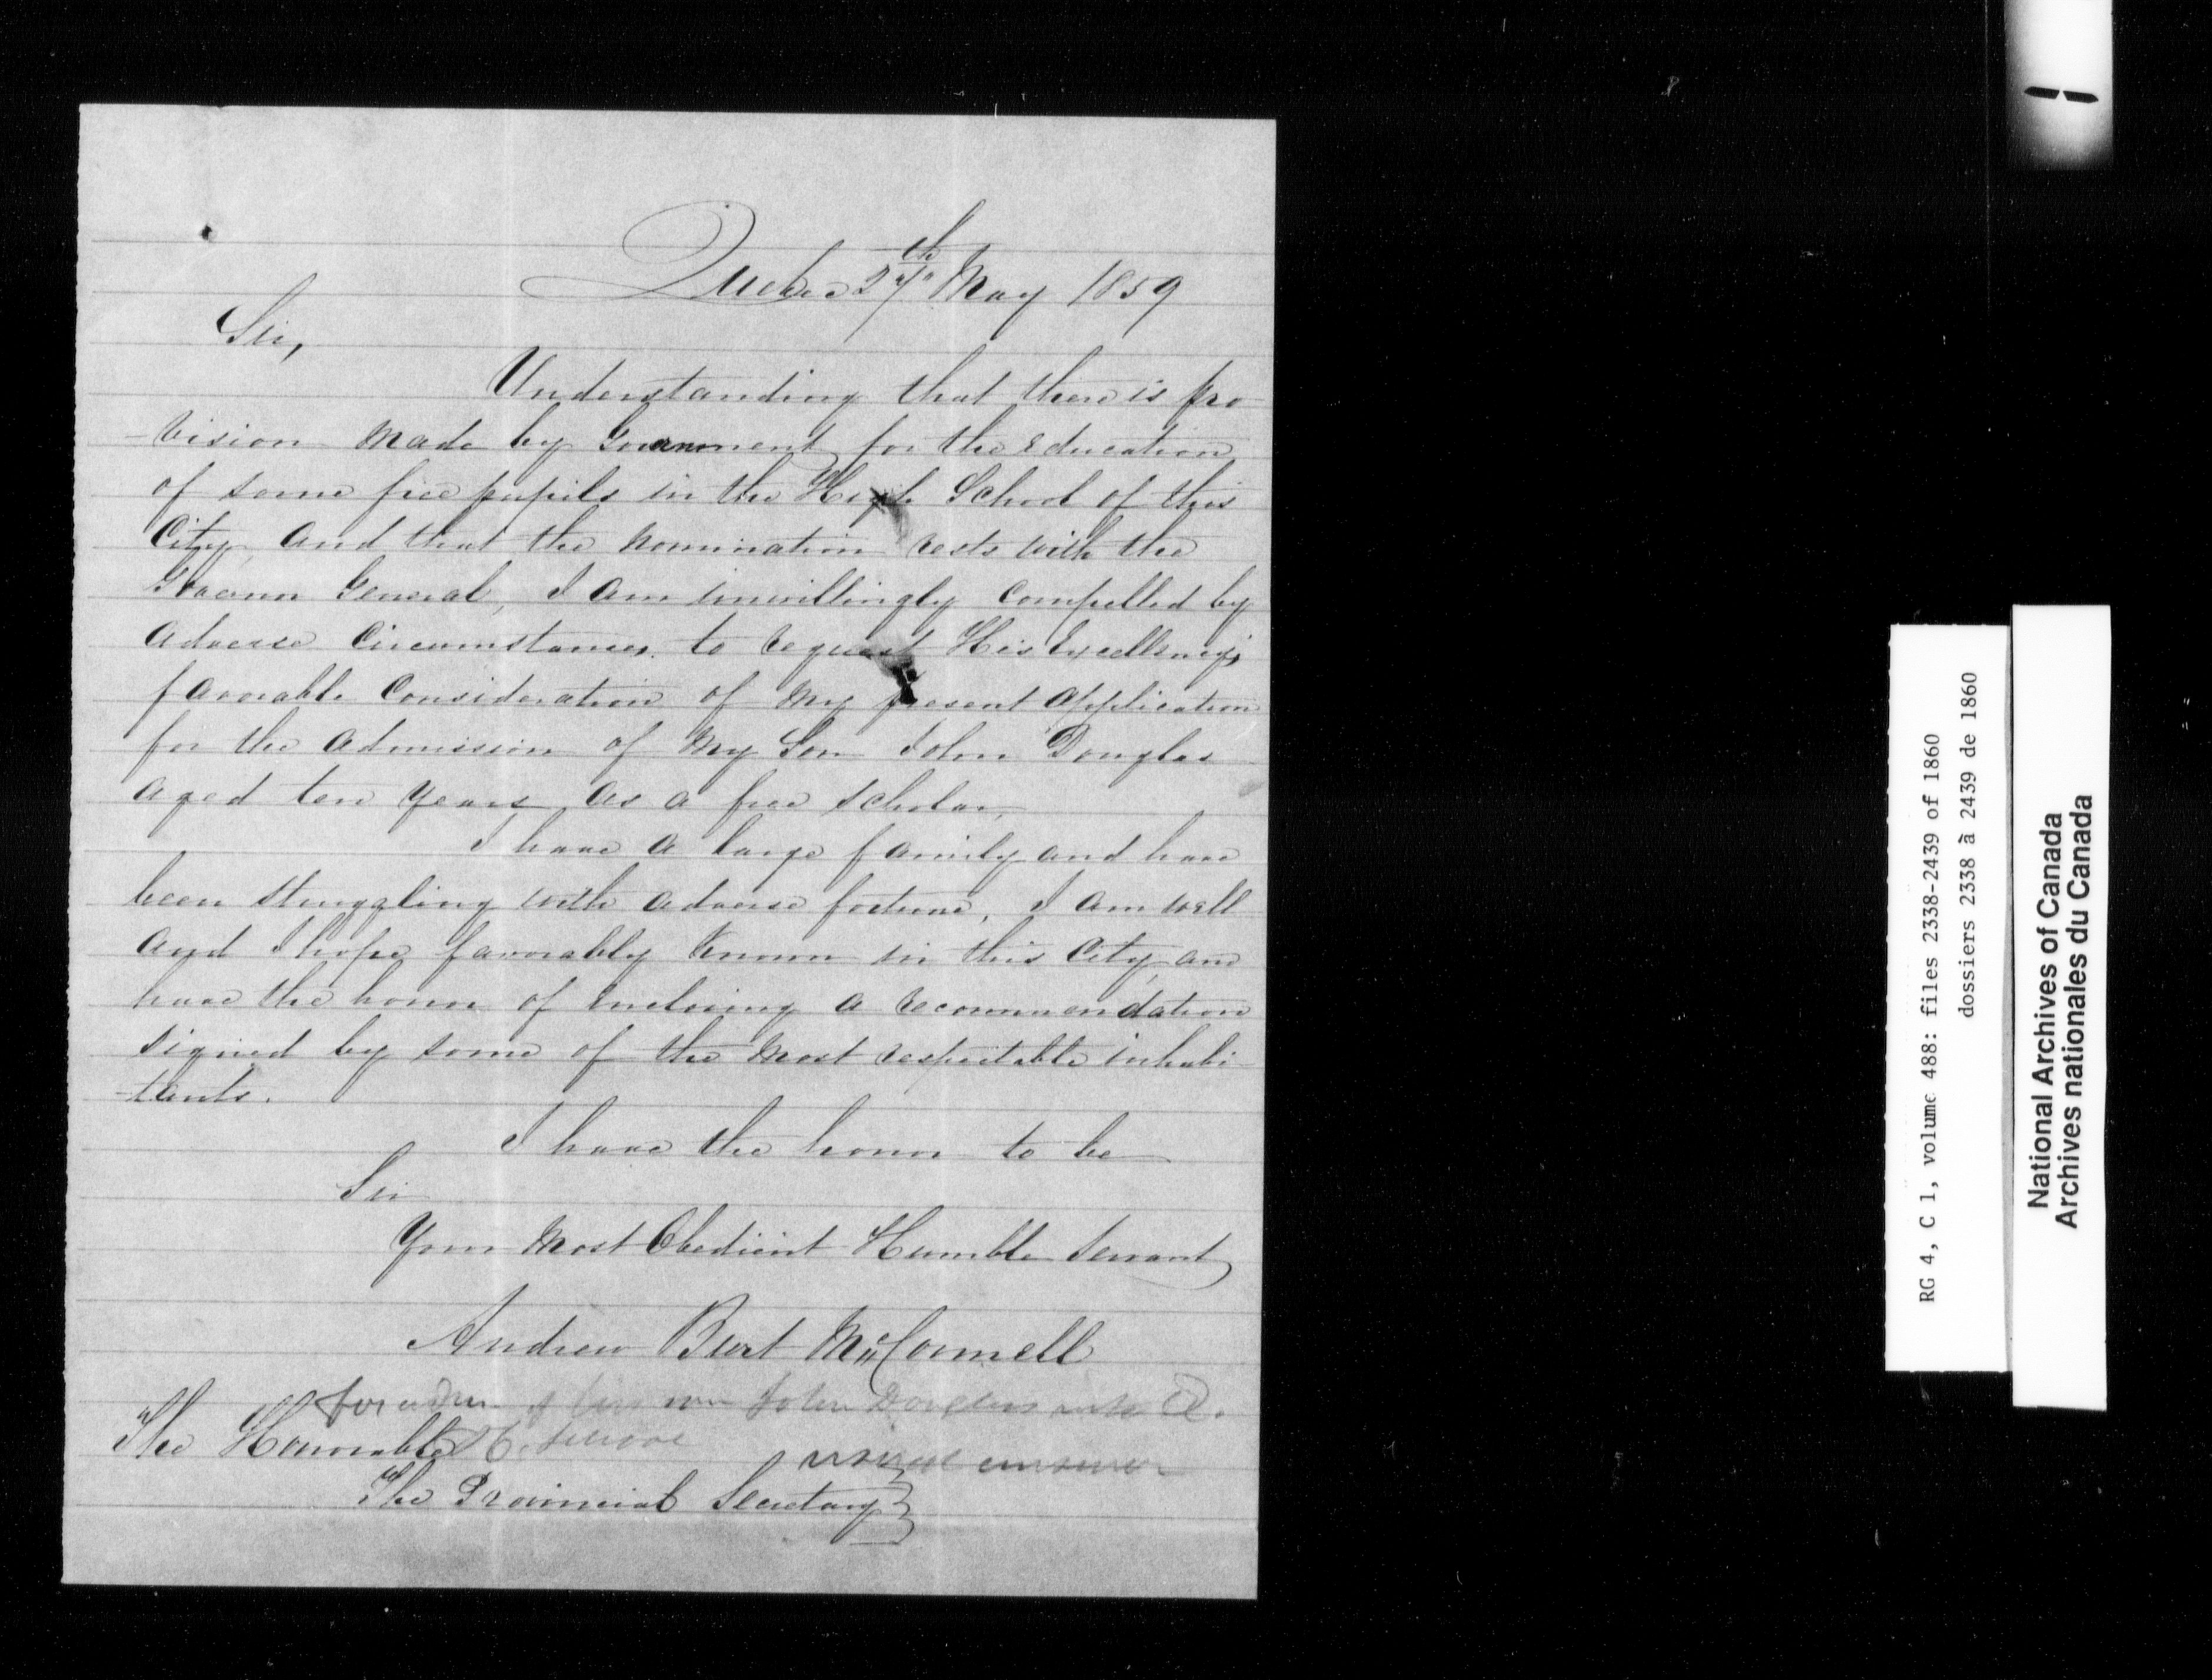 Quebec 27th May 1859
Sir,
Understanding that there is pro
-vision made by Government for the Education
of some free pupils in the High School of this
City, and that the nomination rests with the
Governor General, I am unwillingly compelled by
adverse Circumstances, to request His Excellency's
favorable Consideration of my present application
for the admission of my Son John Douglas
aged ten years, as a free scholar.
I have a large family and have
been struggling with adverse fortune, I am well
and I hope favorably known in this City, and
have the honor of enclosing a recommendation
signed by some of the most respectable inhabi-
-tants.
I have the honor to be
Sir
Your Most Obedient Humble Servant
Andrew Burt McConnell
for adm. of his son John Douglas into Q.
The Honorable H. School
usual answer
The Provincial Secretary
RG 4, C 1, volume 488: files 2338-2439 of 1860
dossiers 2338 à 2439 de 1860
National Archives of Canada
Archives nationales du Canada